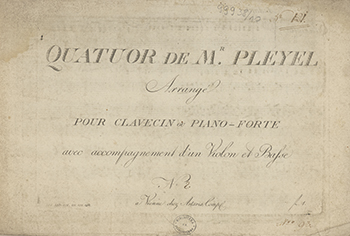 QUATUOR DE M.R PLEYEL
Arrangé
POUR CLAVECIN & PIANO-FORTE
avec accompagnement d'un Violon et Basse
N.
à Vienne chez Artaria Comp.